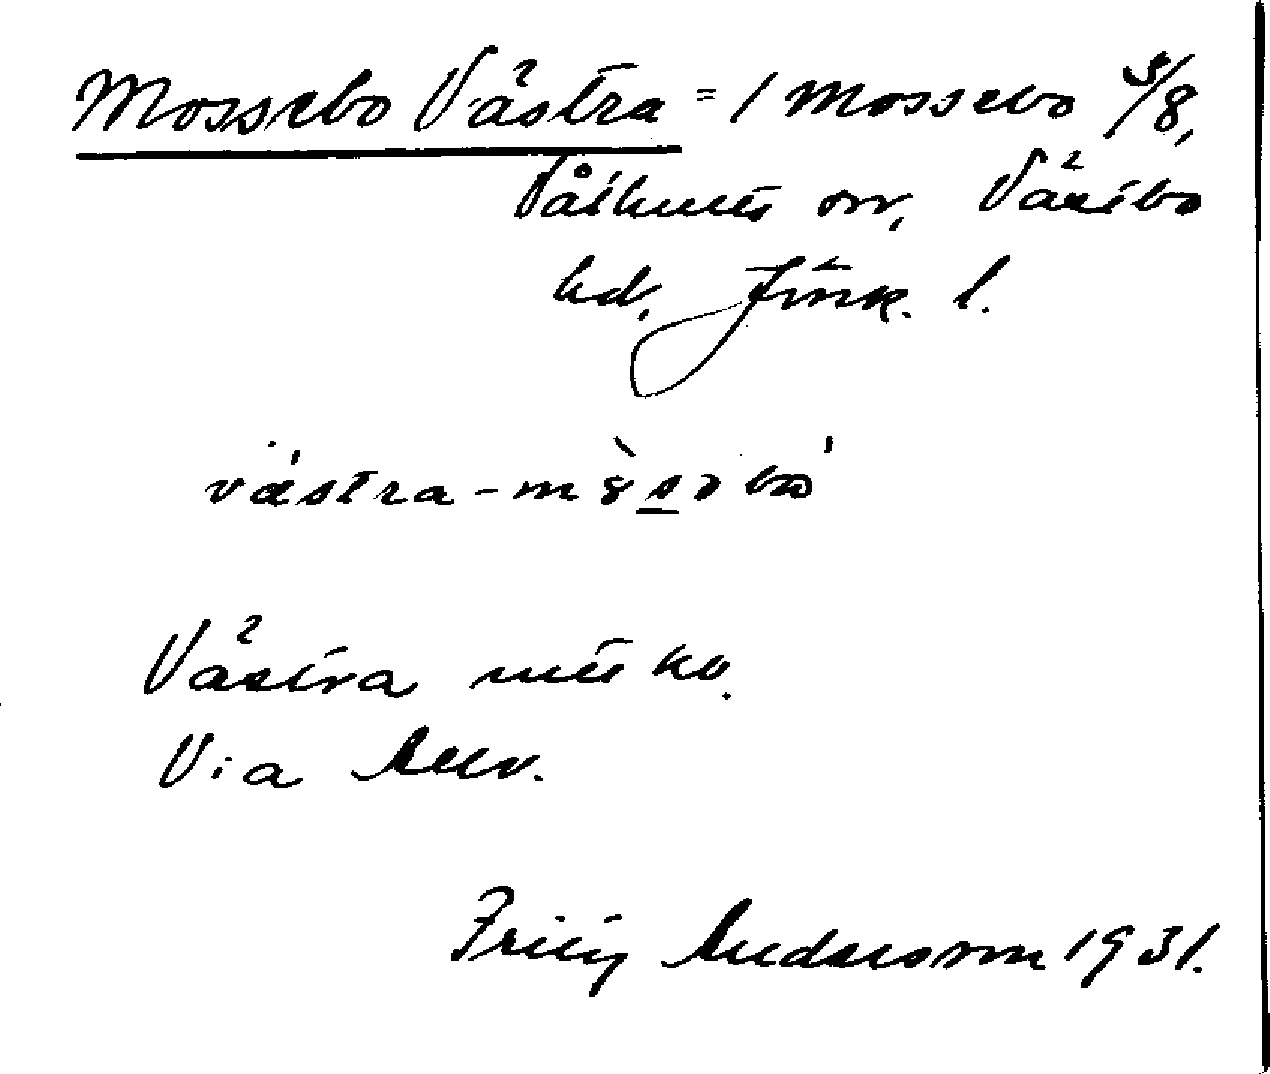 Mossebo Västra = 1 Mossebo 5/8,
Våthults sn, Västbo
hd, Jönk. l.
västra-
Västra
Via
Fritz Andersson 1931.